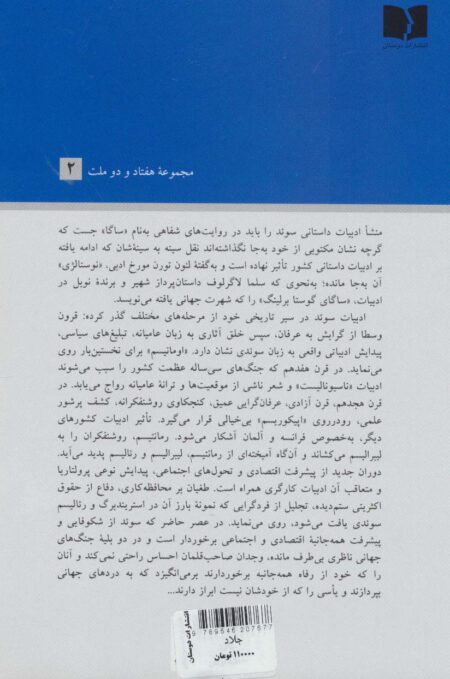 انتشارات دوستان
مجموعهٔ هفتاد و دو ملت ۲
منشأ ادبیات داستانی سوئد را باید در روایت‌های شفاهی به‌نام «ساگا» جست که
گرچه نشان مکتوبی از خود به‌جا نگذاشته‌اند نقل سینه به سینه‌شان که ادامه یافته
بر ادبیات داستانی کشور تأثیر نهاده است و به‌گفتهٔ لئون تورن مورخ ادبی، «نوستالژی»
آن به‌جا مانده؛ به‌نحوی که سلما لاگرلوف داستان‌پرداز شهیر و برندهٔ نوبل در
ادبیات، «ساگای گوستا برلینگ» را که شهرت جهانی یافته می‌نویسد.
ادبیات سوئد در سیر تاریخی خود از مرحله‌های مختلف گذر کرده: قرون
وسطا از گرایش به عرفان، سپس خلق آثاری به زبان عامیانه، تبلیغ‌های سیاسی،
پیدایش ادبیاتی واقعی به زبان سوئدی نشان دارد. «اومانیسم» برای نخستین‌بار روی
می‌نماید. در قرن هفدهم که جنگ‌های سی‌ساله عظمت کشور را سبب می‌شوند
ادبیات «ناسیونالیست» و شعر ناشی از موقعیت‌ها و ترانهٔ عامیانه رواج می‌یابد. در
قرن هجدهم، قرن آزادی، عرفان‌گرایی عمیق، کنجکاوی روشنفکرانه، کشف پرشور
علمی، رودرروی «اپیکوریسم» بی‌خیالی قرار می‌گیرد. تأثیر ادبیات کشورهای
دیگر، به‌خصوص فرانسه و آلمان آشکار می‌شود. رمانتیسم، روشنفکران را به
لیبرالیسم می‌کشاند و آن‌گاه آمیخته‌ای از رمانتیسم، لیبرالیسم و رئالیسم پدید می‌آید.
دوران جدید از پیشرفت اقتصادی و تحول‌های اجتماعی، پیدایش نوعی پرولتاریا
و متعاقب آن ادبیات کارگری همراه است. طغیان بر محافظه‌کاری، دفاع از حقوق
اکثریتی ستمدیده، تجلیل از فردگرایی که نمونهٔ بارز آن در استریندبرگ و رئالیسم
سوئدی یافت می‌شود، روی می‌نماید. در عصر حاضر که سوئد از شکوفایی و
پیشرفت همه‌جانبهٔ اقتصادی و اجتماعی برخوردار است و در دو بلیهٔ جنگ‌های
جهانی ناظری بی‌طرف مانده، وجدان صاحب‌قلمان احساس راحتی نمی‌کند و آنان
را که خود از رفاه همه‌جانبه برخوردارند برمی‌انگیزد که به دردهای جهانی
بپردازند و یأسی را که از خودشان نیست ابراز دارند...
انتشارات دوستان
9 789646 207677
جلاد
۱۱۰۰۰۰ تومان